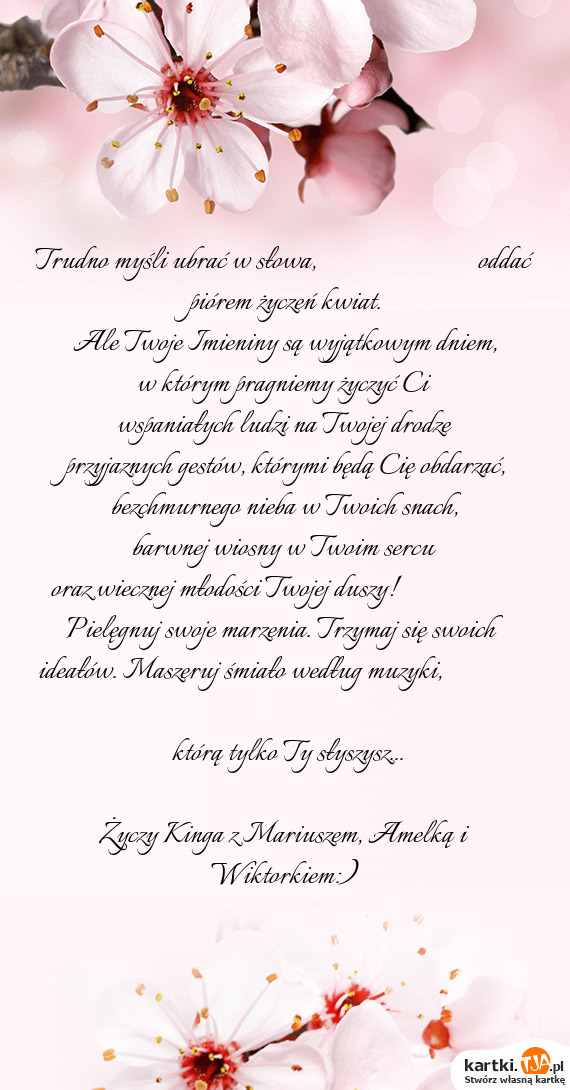 Trudno myśli ubrać w słowa, oddać
piórem życzeń kwiat.
Ale Twoje Imieniny są wyjątkowym dniem,
w którym pragniemy życzyć Ci
wspaniałych ludzi na Twojej drodze
przyjaznych gestów, którymi będą Cię obdarzać,
bezchmurnego nieba w Twoich snach,
barwnej wiosny w Twoim sercu
oraz wiecznej młodości Twojej duszy!
Pielęgnuj swoje marzenia. Trzymaj się swoich
ideałów. Maszeruj śmiało według muzyki,
którą tylko Ty słyszysz...
Życzy Kinga z Mariuszem, Amelką i
Wiktorkiem:)
kartki.TJA.pl
Stwórz własną kartkę